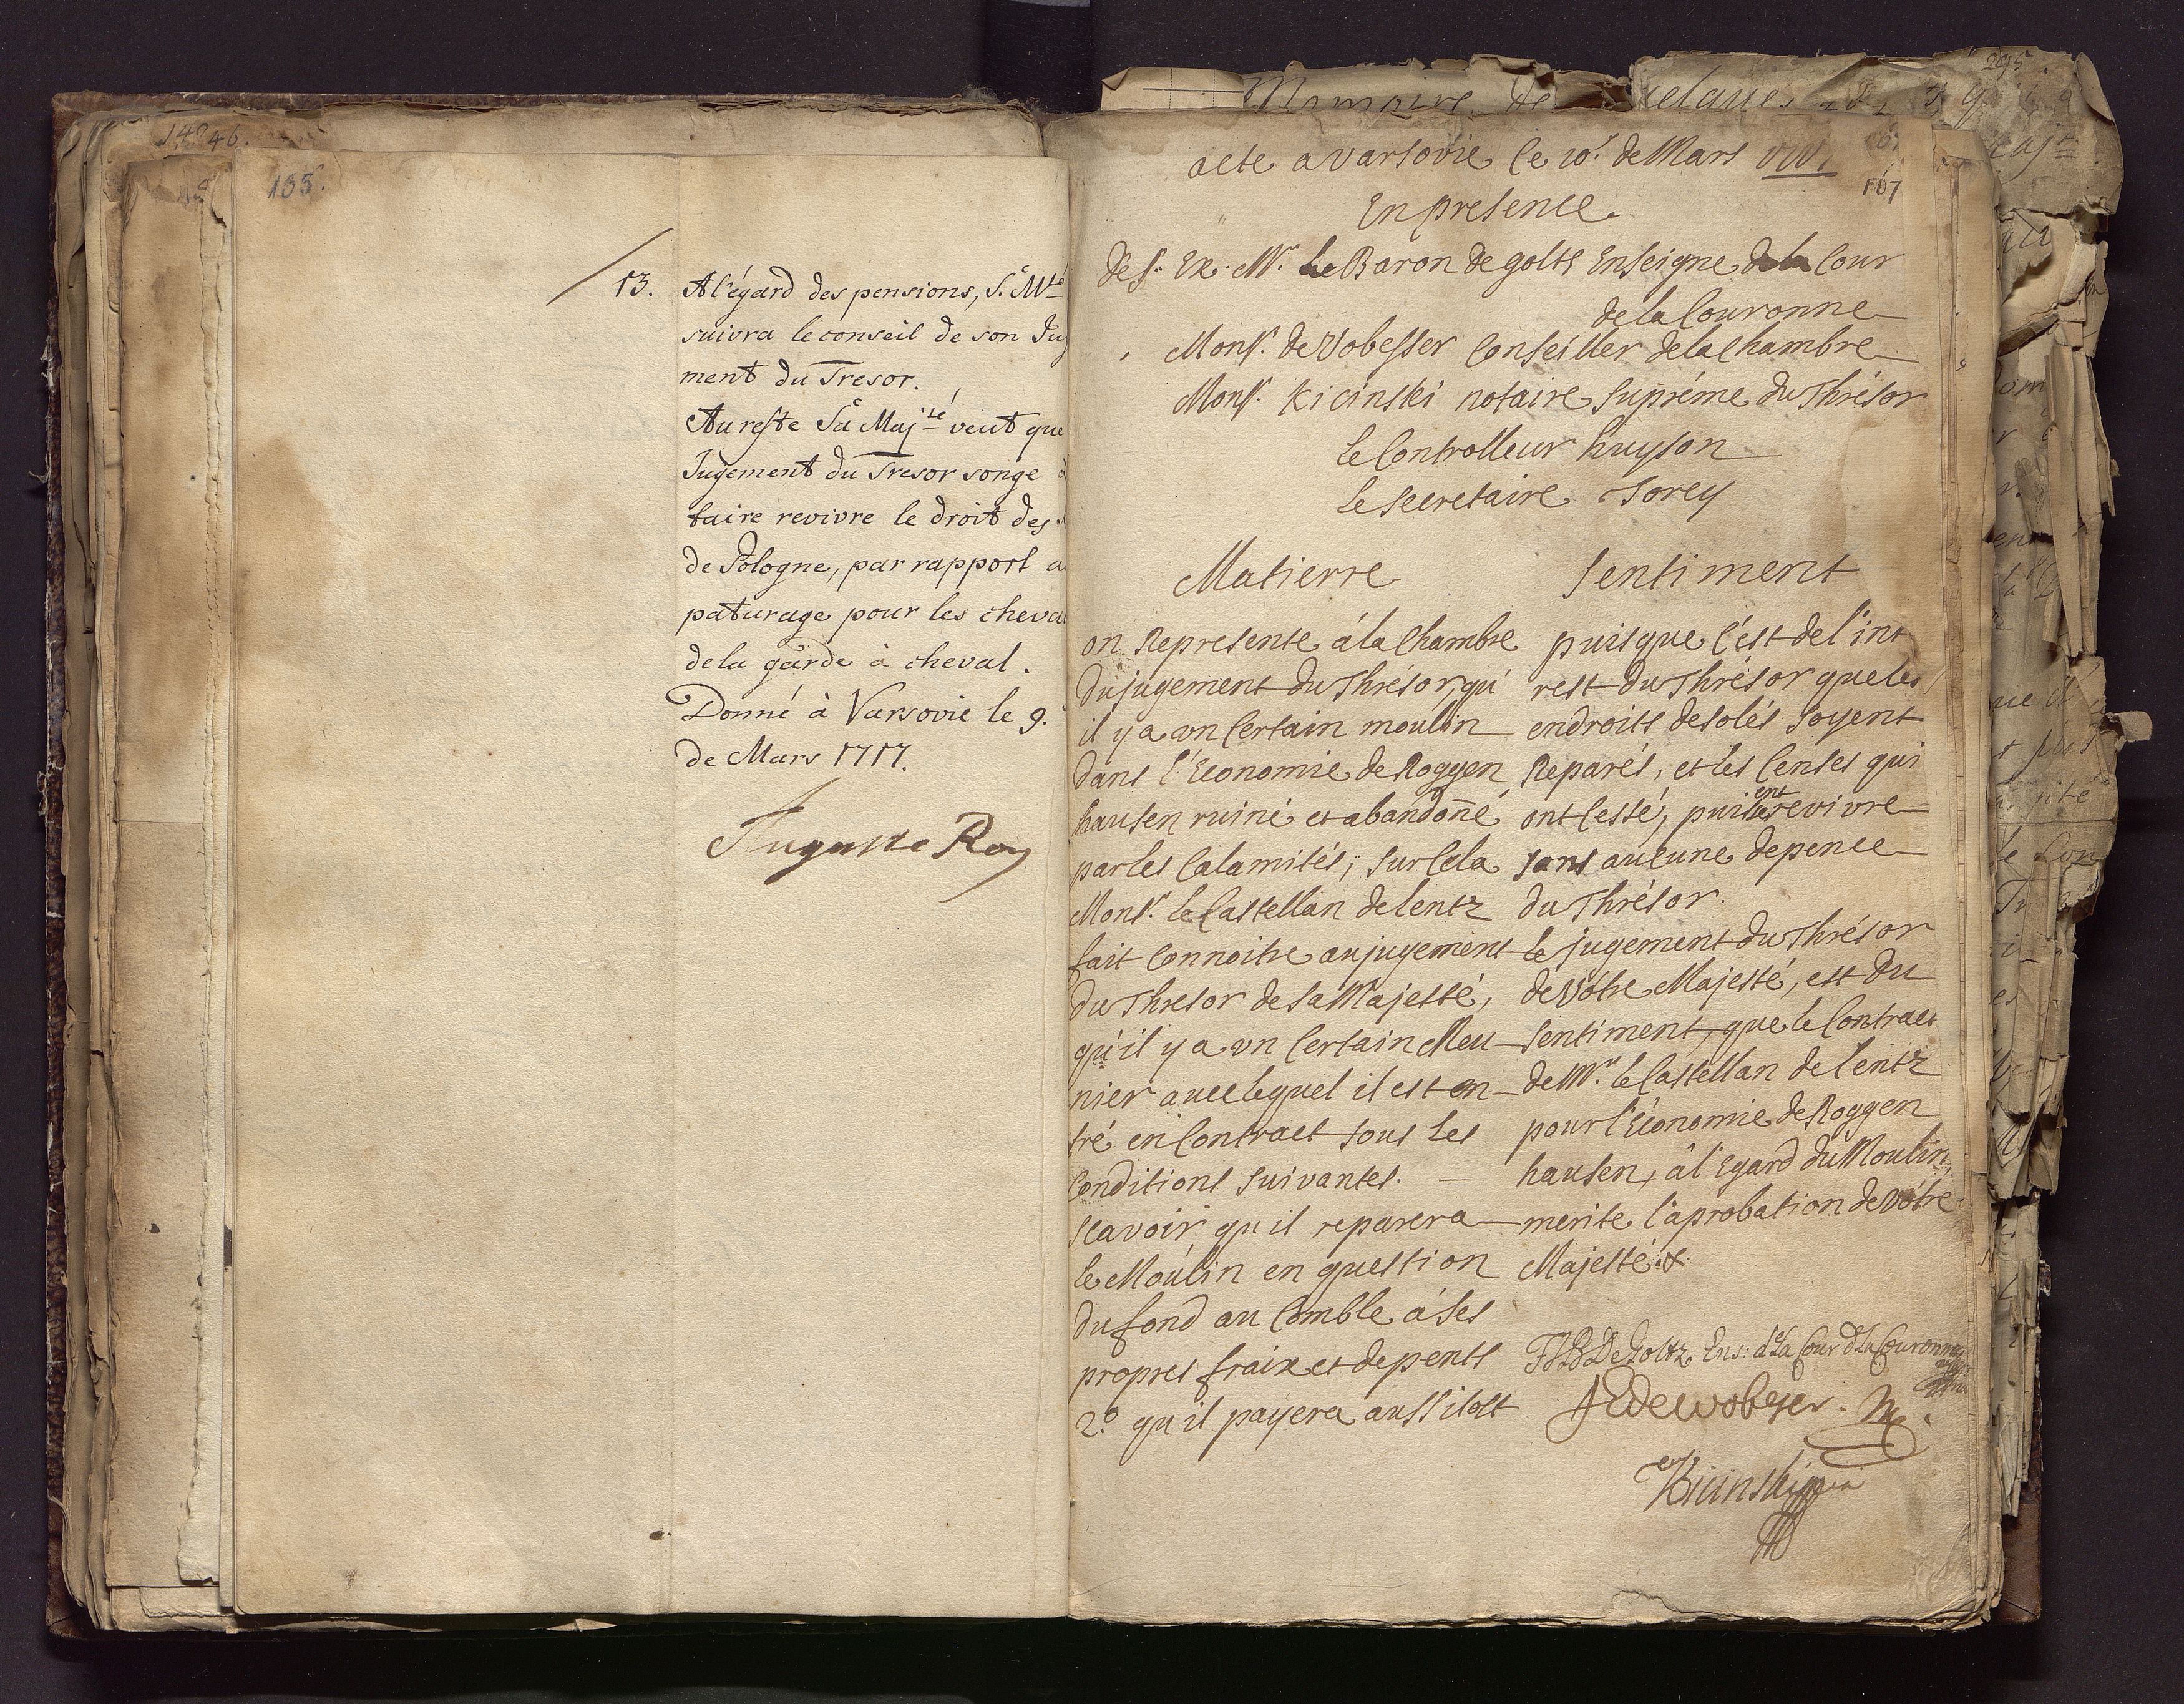 155.
13. A l'égard des pensions, S. Mté
suivra le conseil de son Jug
ment du Tresor.
Au reste Sa Majté veut que
Jugement du Tresor songe à
faire revivre le droit des
de Pologne, par rapport a
paturage pour les cheva
de la garde à cheval.
Donné à Varsovie le 9.
de Mars 1717.
Auguste Roy
acte a varsovie le 10.' de Mars 1717
167
En presence
de S. Ex. Mr. Le Baron de golts Enseigne de la Cour
de la Couronne
Monsr. de Vobesser Conseiller de la Chambre
Monsr. Kicinski notaire supréme du Thrésor
le Controlleur huyson
le Secretaire Torey
Matierre
on Represente á la Chambre
du jugement du Thrésor, qu'
il y a un Certain moulin
dans l'Economie de Roggen
hausen ruiné et abandoñé
par les Calamités; sur Cela
Monsr. le Castellan de lentz
fait Connoitre au jugement
du Thresor de Sa Majesté,
qu'il y a un Certain Meu-
nier avec lequel il est en-
tré en Contract sous les
Conditions suivantes. —
scavoir qu il reparera
le Moulin en question
du fond au Comble á ses
propres fraix et depents
2.º qu il payera aussitost
Sentiment
puisque C'est de l'int
rest du Thrésor que les
endroits desolés soyent
Reparés, et les Censes qui
ont Cessé, puissent revivre
sans aucune depence
du Thrésor.
le jugement du Thrésor
de Vótre Majesté, est du
Sentiment, que le Contract
de Mr. le Castellan de lentz
pour l'Economie de Roggen
hausen, á l'Egard du Moulin,
merite l'aprobation de Vótre
Majesté &.
De Goltz Ens: d la Cour d La Couronne
de wobeser. M
Kicinski